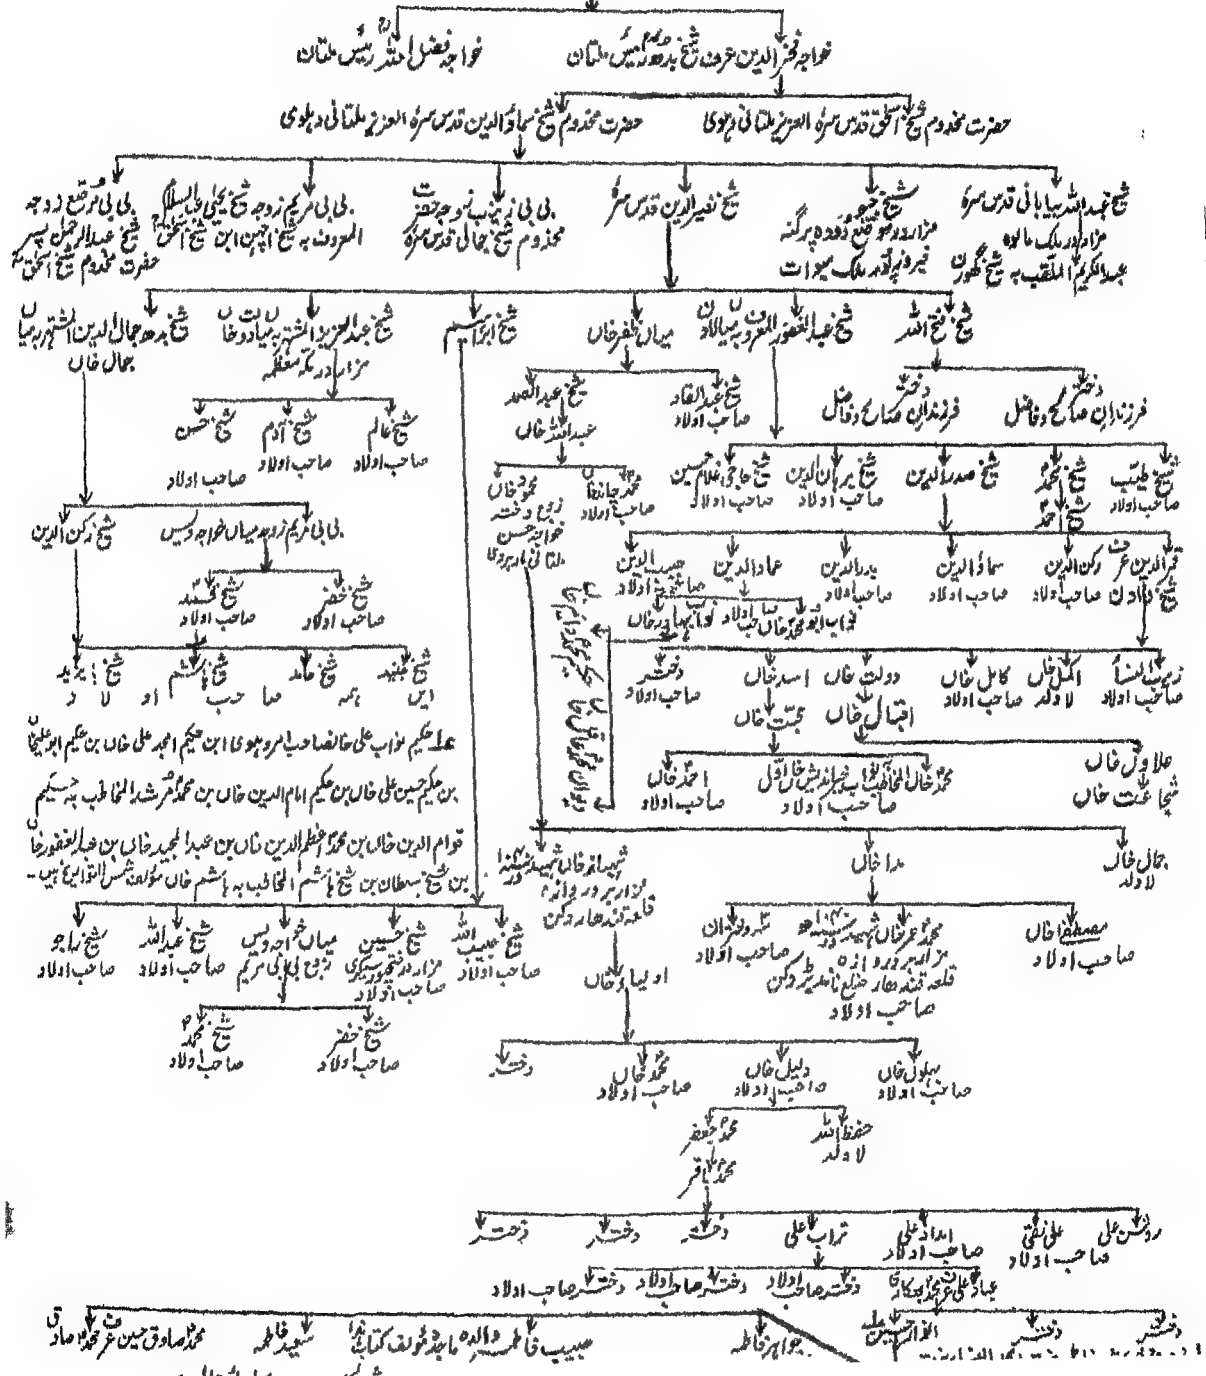 خواجہ فخر الدین عرف شیخ بڈھ رئیس ملتان
خواجہ فضل اللہ رئیس ملتان
حضرت مخدوم شیخ اسحٰق قدس سرہ العزیز ملتانی دہلوی
حضرت مخدوم شیخ سماؤالدین قدس سرہ العزیز ملتانی دہلوی
شیخ عبداللہ بیابانی قدس سرہ
مزار در ملک مالوہ
عبدالکریم الملقب بہ شیخ گھورن
مزار در موضع
پرگنہ
فیروزپور ملک میوات
شیخ نصیرالدین قدس سرہ
بی بی زینب زوجہ حضرت
مخدوم شیخ جمالی قدس سرہ
بی بی مریم زوجہ شیخ یحییٰ
المعروف بہ شیخ اچھن ابن شیخ اسحٰق
زوجہ
شیخ عبدالرحمٰن پسر
حضرت مخدوم شیخ اسحٰق
شیخ فتح اللہ
شیخ عبدالغفور المعروف بہ میاں لادن
میاں ظفر خاں
شیخ ابراہیم
شیخ عبدالعزیز المشتہر بہ
مزار در مکہ معظمہ
شیخ بدھ جمال الدین المشتہر بہ میاں
جمال خاں
دختر
فرزندان صالح و فاضل
دختر
فرزندان صالح و فاضل
شیخ عبدالقادر
صاحب اولاد
شیخ عبدالصمد
عبداللہ خاں
شیخ عالم
صاحب اولاد
شیخ آدم
صاحب اولاد
شیخ حسن
صاحب اولاد
شیخ طیب
صاحب اولاد
شیخ محمد
شیخ احمد
شیخ صدرالدین
شیخ برہان الدین
صاحب اولاد
شیخ حاجی غلام حسین
صاحب اولاد
محمد چاند خاں
صاحب اولاد
محمود خاں
زوج دختر
خواجہ حسن
ملتانی مارہروی
بی بی مریم زوجہ میاں خواجہ ویس
شیخ رکن الدین
قمرالدین عرف
شیخ دادن
رکن الدین
صاحب اولاد
سماؤالدین
صاحب اولاد
بدرالدین
صاحب اولاد
عمادالدین
صاحب اولاد
حبیب الدین
صاحب اولاد
نواب بہادر خاں
شیخ خضر
صاحب اولاد
شیخ محمد
صاحب اولاد
زیب النساء
صاحب اولاد
اکمل خاں
لاولد
کامل خاں
صاحب اولاد
دولت خاں
اقبال خاں
اسد خاں
محبت خاں
دختر
صاحب اولاد
شیخ جنید
شیخ حامد
شیخ ہاشم
شیخ بایزید
این ہمہ صاحب اولاد
حکیم نواب علی خاں صاحب امروہوی ابن حکیم امجد علی خاں بن حکیم ابو علی خاں
بن حکیم حسین علی خاں بن حکیم امام الدین خاں بن محمد مرشد المخاطب بہ حکیم
قوام الدین خاں بن محمد اعظم الدین خاں بن عبدالمجید خاں بن عبدالغفور خاں
بن شیخ سلطان بن شیخ ہاشم المخاطب بہ ہاشم خاں مؤلف شمس التواریخ ہیں۔
ملاول خاں
شجاعت خاں
احمد خاں
صاحب اولاد
صاحب اولاد
جمال خاں
لاولد
مدا خاں
شہداد خاں شہید
مزار بر دروازہ
قلعہ قندھار دکن
مصطفےٰ خاں
صاحب اولاد
محمد عمر خاں شہید
مزار بر دروازہ
قلعہ قندھار ضلع ناندیڑ دکن
صاحب اولاد
صاحب اولاد
شیخ حبیب اللہ
صاحب اولاد
شیخ حسین
مزار در فتحپور سیکری
صاحب اولاد
میاں خواجہ ویس
زوج بی بی مریم
شیخ عبداللہ
صاحب اولاد
شیخ راجو
صاحب اولاد
شیخ خضر
صاحب اولاد
شیخ محمد
صاحب اولاد
اولیاء خاں
بہلول خاں
صاحب اولاد
دلیل خاں
صاحب اولاد
محمد خاں
صاحب اولاد
دختر
حفیظ اللہ
لاولد
محمد جعفر
محمد باقر
روشن علی
علی نقی
صاحب اولاد
امداد علی
صاحب اولاد
تراب علی
دختر
دختر
دختر
دختر صاحب اولاد
دختر صاحب اولاد
دختر صاحب اولاد
دختر
دختر
جواہر فاطمہ
حبیب فاطمہ والدہ ماجدہ مؤلف کتاب ہذا
سعید فاطمہ
محمد صادق حسین عرف محمد صادق